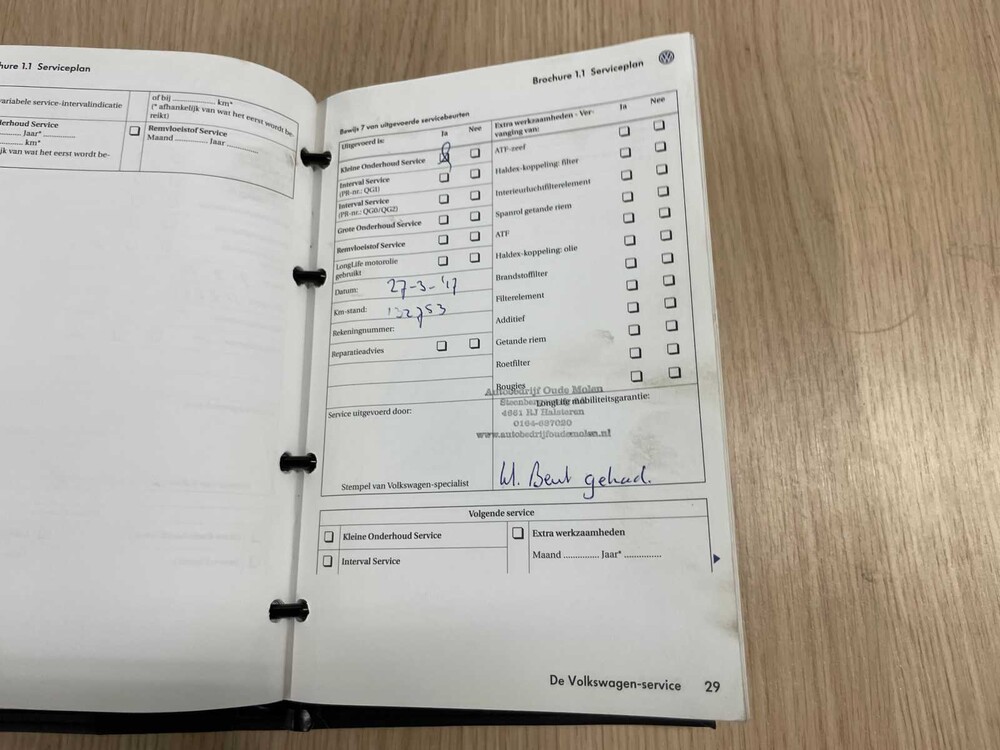 hure 1.1 Serviceplan
variabele service-intervalindicatie
derhoud Service
Jaar*
km*
jk van wat het eerst wordt be-
of bij ............ km*
(* afhankelijk van wat het eerst wordt be-
reikt)
Remvloeistof Service
Maand ............ Jaar ............
Brochure 1.1 Serviceplan
Bewijs 7 van uitgevoerde servicebeurten
Uitgevoerd is:
Ja Nee
Kleine Onderhoud Service
Interval Service
(PR-nr.: QG1)
Interval Service
(PR-nr.: QG0/QG2)
Grote Onderhoud Service
Remvloeistof Service
LongLife motorolie
gebruikt
Datum: 27-3-'17
Km-stand: 132753
Rekeningnummer:
Reparatieadvies
Extra werkzaamheden - Ver-
vanging van:
Ja Nee
ATF-zeef
Haldex-koppeling: filter
Interieurluchtfilterelement
Spanrol getande riem
ATF
Haldex-koppeling: olie
Brandstoffilter
Filterelement
Additief
Getande riem
Roetfilter
Bougies
Service uitgevoerd door:
LongLife mobiliteitsgarantie:
Autobedrijf Oude Molen
4661 RJ Halsteren
0164-687020
www.autobedrijfoudemolen.nl
Stempel van Volkswagen-specialist
W. Beut gehad.
Volgende service
Kleine Onderhoud Service
Interval Service
Extra werkzaamheden
Maand ............... Jaar* ...............
De Volkswagen-service 29